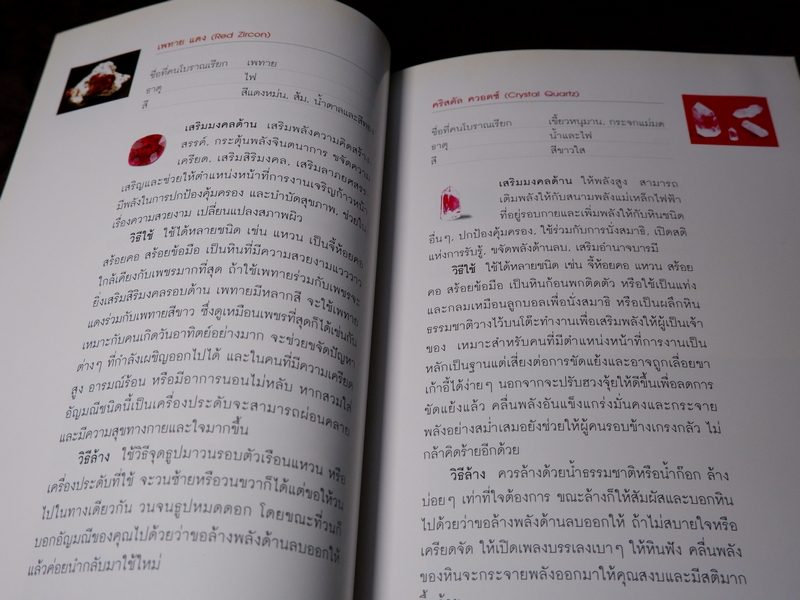 เพทาย แดง (Red Zircon)
ชื่อที่คนโบราณเรียก เพทาย
ธาตุ ไฟ
สี สีแดงหม่น, ส้ม, น้ำตาลและสี
เสริมมงคลด้าน เสริมพลังความคิดสร้าง
สรรค์, กระตุ้นพลังจินตนาการ ขจัดความ
เครียด, เสริมสิริมงคล, เสริมลาภยศสรร
เสริญและช่วยให้ตำแหน่งหน้าที่การงานเจริญก้าวหน้า
มีพลังในการปกป้องคุ้มครอง และบำบัดสุขภาพ, ช่วยใน
เรื่องความสวยงาม เปลี่ยนแปลงสภาพผิว
วิธีใช้ ใช้ได้หลายชนิด เช่น แหวน เป็นจี้ห้อยคอ
สร้อยคอ สร้อยข้อมือ เป็นหินที่มีความสวยงามแวววาว
ใกล้เคียงกับเพชรมากที่สุด ถ้าใช้เพทายร่วมกับเพชรจะ
ยิ่งเสริมสิริมงคลรอบด้าน เพทายมีหลากสี จะใช้เพทาย
แดงร่วมกับเพทายสีขาว ซึ่งดูเหมือนเพชรที่สุดก็ได้เช่นกัน
เหมาะกับคนเกิดวันอาทิตย์อย่างมาก จะช่วยขจัดปัญหา
ต่างๆ ที่กำลังเผชิญออกไปได้ และในคนที่มีความเครียด
สูง อารมณ์ร้อน หรือมีอาการนอนไม่หลับ หากสวมใส่
อัญมณีชนิดนี้เป็นเครื่องประดับจะสามารถผ่อนคลาย
และมีความสุขทางกายและใจมากขึ้น
วิธีล้าง ใช้วิธีจุดธูปมาวนรอบตัวเรือนแหวน หรือ
เครื่องประดับที่ใช้ จะวนซ้ายหรือวนขวาก็ได้แต่ขอให้วน
ไปในทางเดียวกัน วนจนธูปหมดดอก โดยขณะที่วนก็
บอกอัญมณีของคุณไปด้วยว่าขอล้างพลังด้านลบออกให้
แล้วค่อยนำกลับมาใช้ใหม่
คริสตัล ควอตซ์ (Crystal Quartz)
ชื่อที่คนโบราณเรียก เขี้ยวหนุมาน, กระจกแม่มด
ธาตุ น้ำและไฟ
สี สีขาวใส
เสริมมงคลด้าน ให้พลังสูง สามารถ
เติมพลังให้กับสนามพลังแม่เหล็กไฟฟ้า
ที่อยู่รอบกายและเพิ่มพลังให้กับหินชนิด
อื่นๆ, ปกป้องคุ้มครอง, ใช้ร่วมกับการนั่งสมาธิ, เปิดสติ
แห่งการรับรู้, ขจัดพลังด้านลบ, เสริมอำนาจบารมี
วิธีใช้ ใช้ได้หลายชนิด เช่น จี้ห้อยคอ แหวน สร้อย
คอ สร้อยข้อมือ เป็นหินก้อนพกติดตัว หรือใช้เป็นแท่ง
และกลมเหมือนลูกบอลเพื่อนั่งสมาธิ หรือเป็นผลึกหิน
ธรรมชาติวางไว้บนโต๊ะทำงานเพื่อเสริมพลังให้ผู้เป็นเจ้า
ของ เหมาะสำหรับคนที่มีตำแหน่งหน้าที่การงานเป็น
หลักเป็นฐานแต่เสี่ยงต่อการขัดแย้งและอาจถูกเลื่อยขา
เก้าอี้ได้ง่ายๆ นอกจากจะปรับฮวงจุ้ยให้ดีขึ้นเพื่อลดการ
ขัดแย้งแล้ว คลื่นพลังอันแข็งแกร่งมั่นคงและกระจาย
พลังอย่างสม่ำเสมอยังช่วยให้ผู้คนรอบข้างเกรงกลัว ไม่
กล้าคิดร้ายอีกด้วย
วิธีล้าง ควรล้างด้วยน้ำธรรมชาติหรือน้ำก๊อก ล้าง
บ่อยๆ เท่าที่ใจต้องการ ขณะล้างก็ให้สัมผัสและบอกหิน
ไปด้วยว่าขอล้างพลังด้านลบออกให้ ถ้าไม่สบายใจหรือ
เครียดจัด ให้เปิดเพลงบรรเลงเบาๆ ให้หินฟัง คลื่นพลัง
ของหินจะกระจายพลังออกมาให้คุณสงบและมีสติมาก